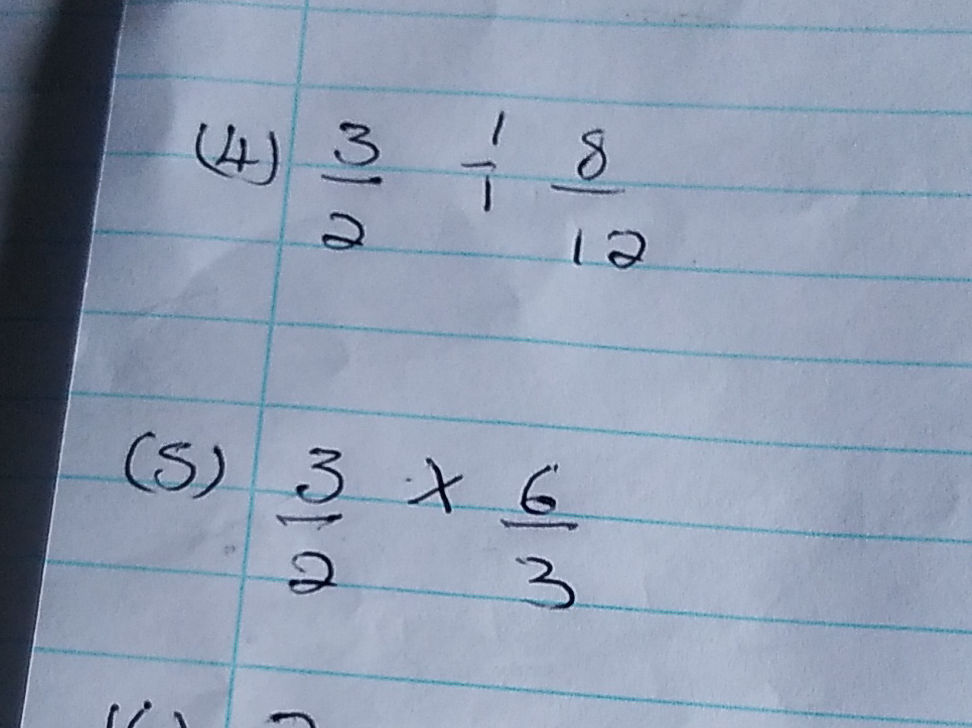 (4) 3/2 ÷ 8/12
(5) 3/2 × 6/3